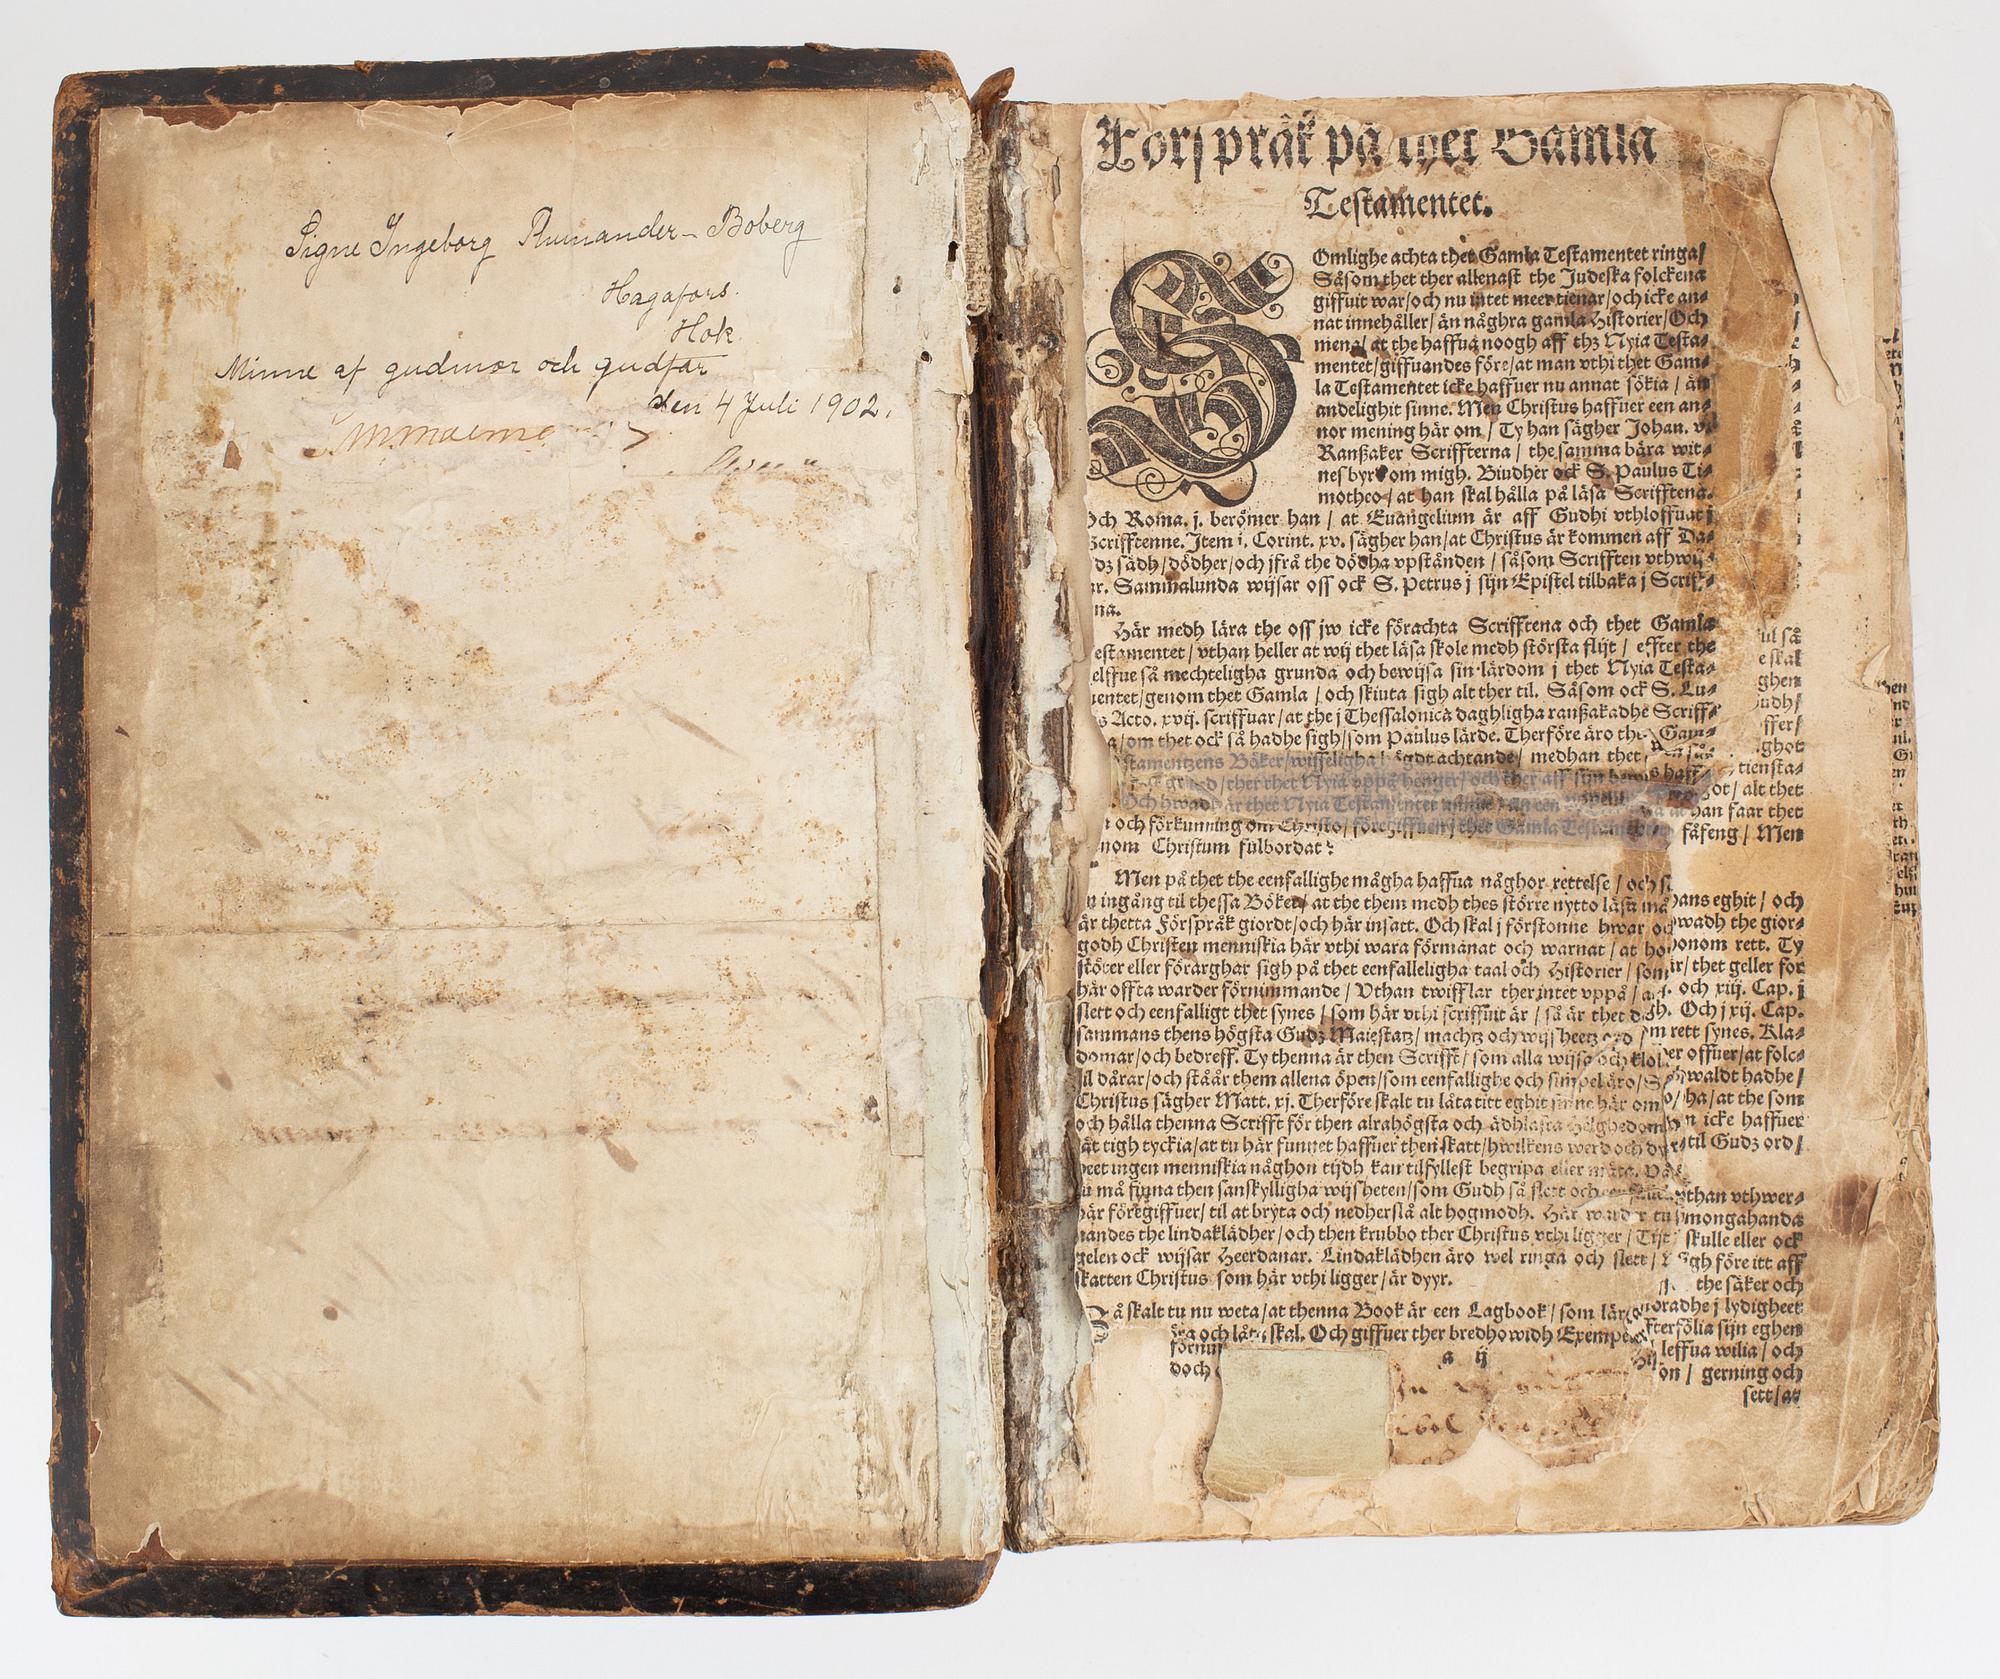 Signe Ingeborg Rumander-Boberg
Hagafors.
Hok
Minne af gudmor och gudfar
den 4 Juli 1902.
Förspråk på thet Gamla
Testamentet.
SOmlighe achta thet Gamla Testamentet ringa/
Såsom thet ther allenast the Judeska folckena
giffuit war/och nu intet meer tienar/och icke an=
nat innehåller/än någhra gamla Historier/Och
mena/at the haffua noogh aff thz Nyia Testa=
mentet/giffuandes före/at man vthi thet Gam=
la Testamentet icke haffuer nu annat sökia/än
andelighit sinne. Men Christus haffuer een an=
nor mening här om/Ty han sägher Johan. v.
Ranßaker Scriffterna/the samma bära wit=
nesbyr om migh. Biudher ock S. Paulus Ti=
motheo/at han skal hålla på läsa Scrifftena.
Och Roma. j. berömer han/at Euangelium är aff Gudhi vthloffuat j
Scrifftenne. Item i. Corint. xv. sägher han/at Christus är kommen aff Da=
dz sädh/dödher/och jfrå the dödha vpstånden/såsom Scrifften vthwij=
ar. Sammalunda wijsar oss ock S. Petrus j sijn Epistel tilbaka j Scriff=
na.
Här medh lära the oss jw icke förachta Scrifftena och thet Gamla
estamentet/vthan heller at wij thet läsa skole medh största flijt/effter the
elffue så mechteligha grunda och bewijsa sin lärdom j thet Nyia Testa=
mentet/genom thet Gamla/och skiuta sigh alt ther til. Såsom ock S. Lu=
s Acto. xvij. scriffuar/at the j Thessalonica daghligha ranßakadhe Scriff=
a/om thet ock så hadhe sigh/som Paulus lärde. Therföre äro the Gam=
stamentzens Böker/wisseligha achtande/medhan thet
grund/ther thet Nyia vppå henger/och ther aff sijn haff=
Och hwadh är thet Nyia Testamentet een
och förkunning om Christo/föregiffuen/thet Gamla
nom Christum fulbordat?
Men på thet the eenfallighe mågha haffua någhor rettelse/och
n ingång til thessa Böker/at the them medh thes större nytto läsa må
är thetta Förspråk giordt/och här insatt. Och skal j förstonne hwar och
godh Christen menniskia här vthi wara förmanat och warnat/at ho
stöter eller förarghar sigh på thet eenfalleligha taal och Historier/som
här offta warder förnimmande/Vthan twifflar ther intet vppå/
slett och eenfalligt thet synes/som här vthi scriffuit är/så är thet
sammans thens högsta Gudz Maiestatz/machtz och wijsheetz ord/
domar/och bedreff. Ty thenna är then Scrifft/som alla wijsa och klok
til dårar/och ståår them allena öpen/som eenfallighe och simpel äro/
Christus sägher Matt. xj. Therföre skalt tu låta titt eghit sinne här om
och hålla thenna Scrifft för then alrahögsta och ädhlasta Helghedom
åt tigh tyckia/at tu här funnet haffuer then skatt/hwilkens werd och
heet ingen menniskia någhon tijdh kan tilfyllest begripa eller mäta.
u må finna then sanskylligha wijsheten/som Gudh så slett och
här föregiffuer/til at bryta och nedherslå alt hogmodh. Här warder tu
nandes the lindaklädher/och then krubbo ther Christus vthi ligger/
gelen ock wijsar Heerdanar. Lindaklädhen äro wel ringa och slett/
skatten Christus som här vthi ligger/är dyyr.
å skalt tu nu weta/at thenna Book är een Lagbook/som
och låta skal. Och giffuer ther bredhowidh
a ij
doch
ul så
e skal
ghen
udh/
ffer/
ghot
tiensta=
got/alt thet
han faar thet
fåfeng/Men
hans eghit/och
wadh the gior=
honom rett. Ty
ir/thet geller för
. och xiij. Cap. j
h. Och j xij. Cap.
m rett synes. Kla=
er offuer/at folc=
waldt hadhe/
o/ha/at the som
n icke haffuer
til Gudz ord/
than vthwer=
mongahanda
skulle eller ock
gh före itt aff
the säker och
oradhe j lydigheet
fterfölia sijn eghen
leffua wilia/och
on/gerning och
sett/at